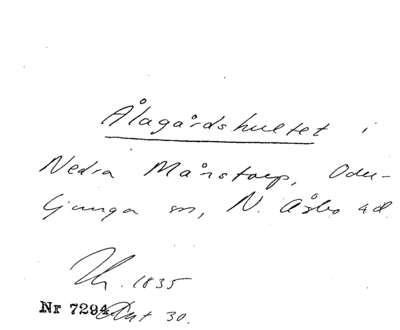 Ålagårdshultet i
Nedra Månstorp, Oder-
ljunga sn, N. Åsbo hd.
1835
Nr 7294 Akt 30.